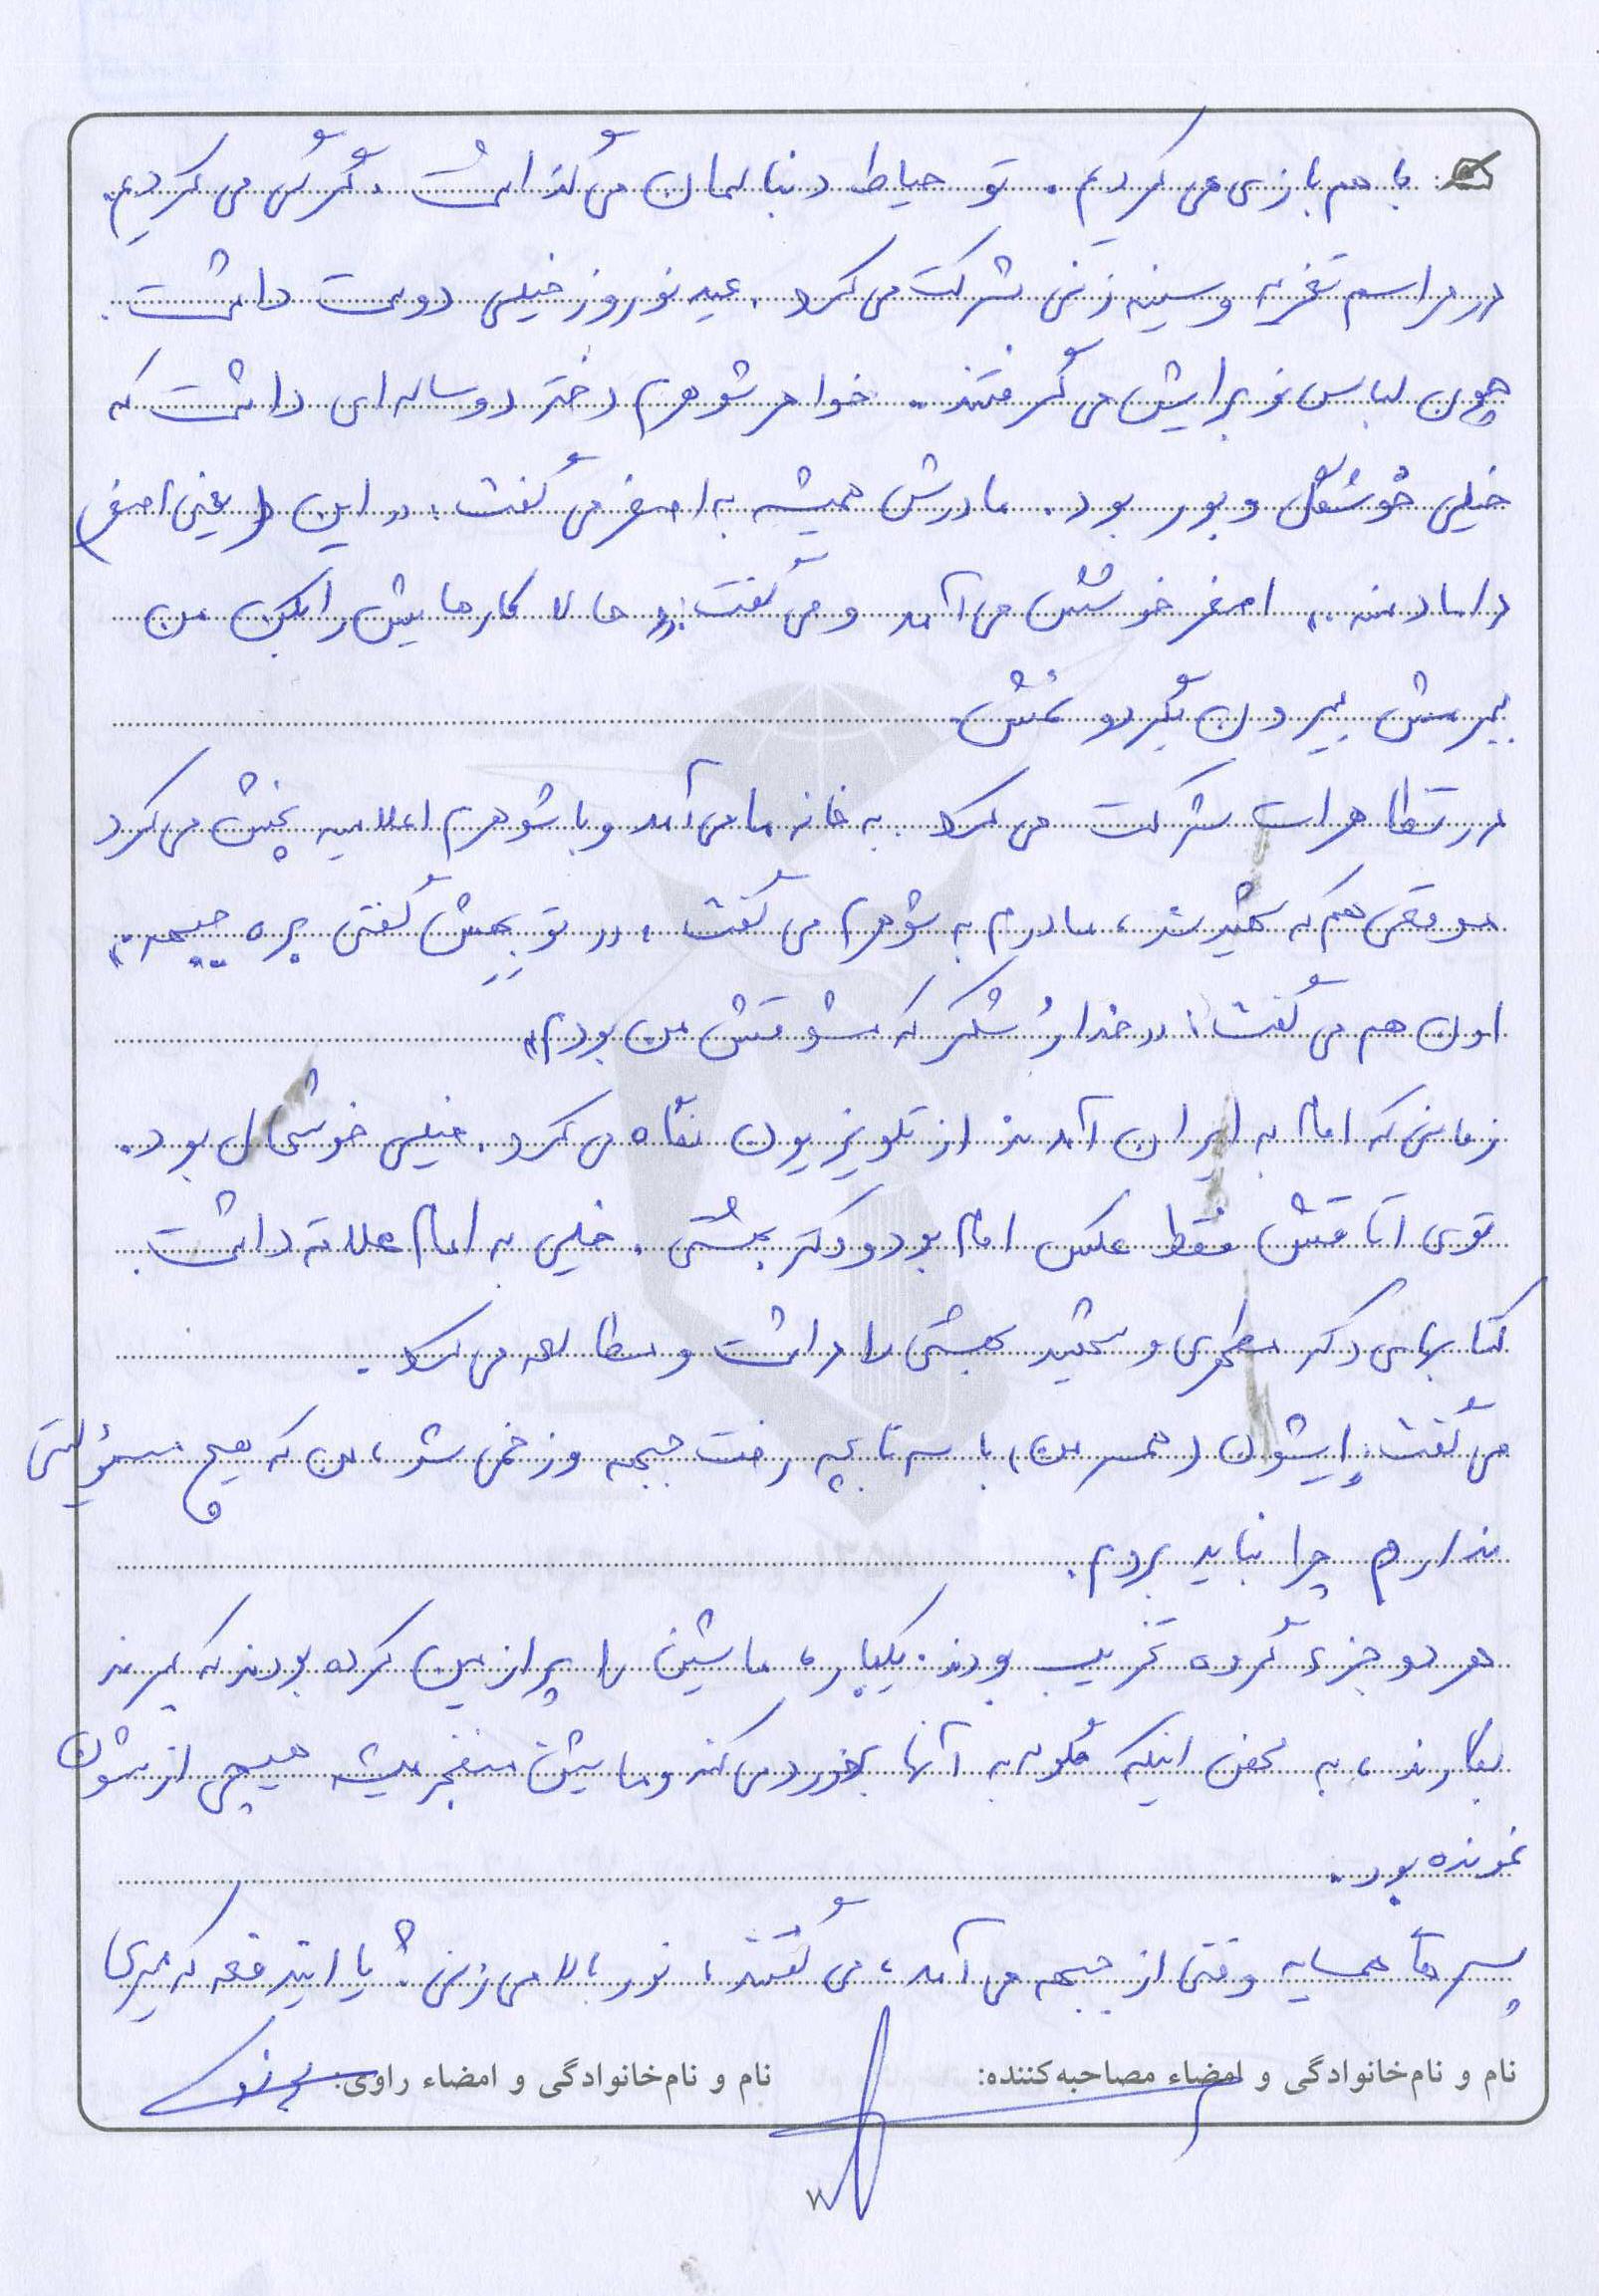 با هم بازی می کردیم. تو حیاط دنبالمان می گذاشت. گرگی می کردیم.
در مراسم تعزیه و سینه زنی شرکت می کرد. عید نوروز خیلی دوست داشت.
چون لباس نو برایش می گرفتند. خواهر شوهرم دختر دو ساله ای داشت که
خیلی خوشگل و بور بود. مادرش همیشه به اصغر می گفت: «این (یعنی اصغر)
داماد منه» اصغر خوشش می آمد و می گفت: «حالا کارهایش را بکن من
ببرمش بیرون بگردونمش.
در تظاهرات شرکت می کرد. به خانه ما می آمد و با شوهرم اعلامیه پخش می کرد
موقعی هم که شهید شد، مادرم به شوهرم می گفت: «تو بهش گفتی بره جبهه.»
اون هم می گفت: «خدا رُ شکر که مشوقش من بودم»
زمانی که امام به ایران آمدند از تلویزیون نگاه می کرد. خیلی خوشحال بود.
توی اتاقش فقط عکس امام بود و دکتر بهشتی. خیلی به امام علاقه داشت.
کتابهای دکتر مطهری و شهید بهشتی را داشت و مطالعه می کرد.
می گفت: ایشون (همسر من) با سه تا بچه رفت جبهه و زخمی شد، من که هیچ مسؤلیتی
ندارم چرا نباید بروم.
هر دو جزء گروه تخریب بودند. یکباره ماشین را پر از مین کرده بودند که ببرند
بکارند، به محض اینکه گلوله به آنها برخورد می کند و ماشین منفجر میشه هیچی ازشون
نمونده بود.
پسر همسایه وقتی از جبهه می آمد، می گفتند، نور بالا می زنی، یا ایندفعه که میری
نام و نام‌خانوادگی و امضاء مصاحبه‌کننده:
نام و نام‌خانوادگی و امضاء راوی:
۷